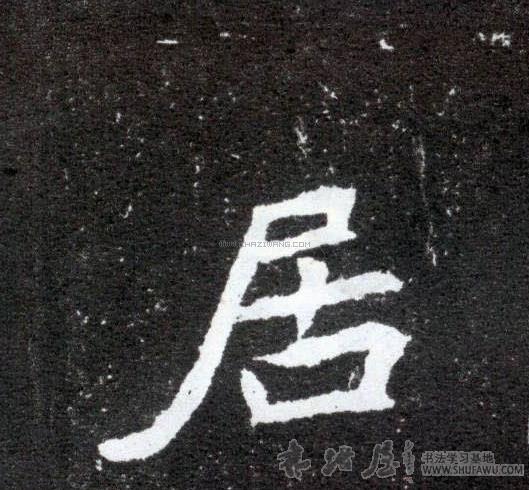 居
WWW.CHAZIWANG.COM
书法学习基地
WWW.SHUFAWU.COM